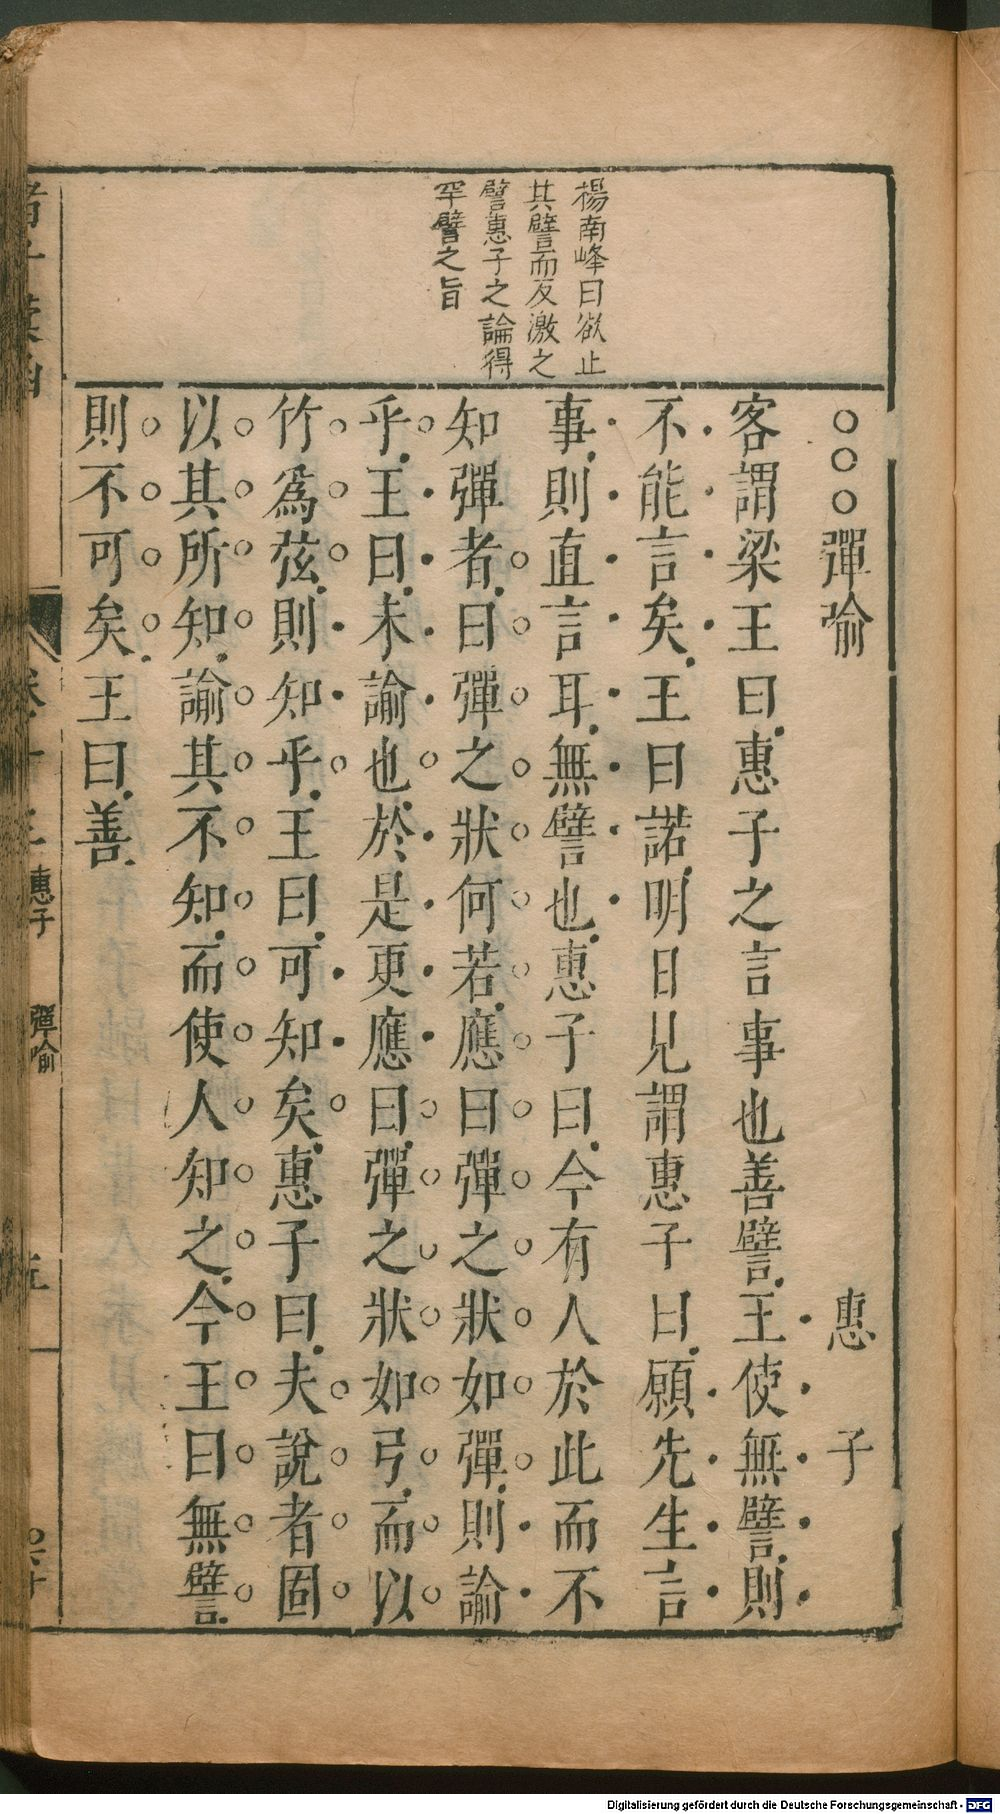 楊南峰曰欲止
其譬而反激之
譬惠子之論得
罕譬之旨
○○○彈喻　惠子
客謂梁王曰惠子之言事也善譬王使無譬則
不能言矣王曰諾明日見謂惠子曰願先生言
事則直言耳無譬也惠子曰今有人於此而不
知彈者曰彈之狀何若應曰彈之狀如彈則諭
乎王曰未諭也於是更應曰彈之狀如弓而以
竹爲弦則知乎王曰可知矣惠子曰夫說者固
以其所知諭其不知而使人知之今王曰無譬
則不可矣王曰善
惠子　彈喻
五
Digitalisierung gefördert durch die Deutsche Forschungsgemeinschaft - DFG